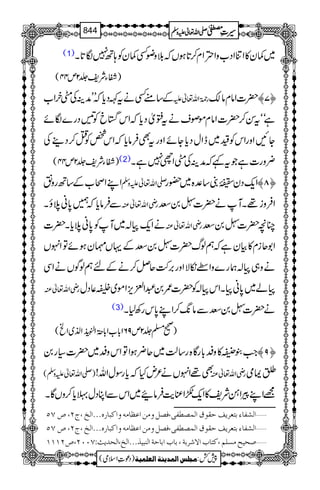 سیرتِ مصطفیٰ صلی اللہ تعالیٰ علیہ وسلم 844
کمان میں اتنا ادب و احترام کرتا ہوں کہ بلا وضو کسی کمان کو ہاتھ نہیں لگاتا۔(1)
(شفاء شریف جلد۲ ص۴۴)
﴿۷﴾ حضرت امام مالک رحمۃ اللہ تعالیٰ علیہ کے سامنے کسی نے یہ کہہ دیا کہ ”مدینہ کی مٹی خراب
ہے“ یہ سن کر حضرت امام موصوف نے یہ فتویٰ دیا کہ اس گستاخ کو تیس درے لگائے
جائیں اور اس کو قید میں ڈال دیا جائے اور یہ بھی فرمایا کہ اس شخص کو قتل کر دینے کی
ضرورت ہے جو یہ کہے کہ مدینہ کی مٹی اچھی نہیں ہے۔(2) (شفاء شریف جلد۲ ص۴۴)
﴿۸﴾ ایک دن ثقیفہ بنی ساعدہ میں حضور صلی اللہ تعالیٰ علیہ وسلم اپنے اصحاب کے ساتھ رونق
افروز تھے۔ آپ نے حضرت سہل بن سعد رضی اللہ تعالیٰ عنہ سے فرمایا کہ ہمیں پانی پلاؤ۔
چنانچہ حضرت سہل بن سعد رضی اللہ تعالیٰ عنہ نے ایک پیالہ میں آپ کو پانی پلایا۔ حضرت
ابو حازم کا بیان ہے کہ ہم لوگ حضرت سہل بن سعد کے یہاں مہمان ہوئے تو انہوں
نے وہی پیالہ ہمارے واسطے نکالا اور برکت حاصل کرنے کے لئے ہم لوگوں نے اسی
پیالے میں پانی پیا۔ اس پیالہ کو حضرت عمر بن عبدالعزیز اموی خلیفہ عادل رضی اللہ تعالیٰ عنہ
نے حضرت سہل بن سعد سے مانگ کر اپنے پاس رکھ لیا۔(3)
(صحیح مسلم جلد۲ ص۱۶۹ باب اباحۃ النبیذ الذی الخ)
﴿۹﴾ جب بنو حنیفہ کا وفد بارگاہ رسالت میں حاضر ہوا تو اس وفد میں حضرت سیار بن
طلق یمامی رضی اللہ تعالیٰ عنہ بھی تھے انہوں نے عرض کیا کہ یا رسول اللہ! (صلی اللہ تعالیٰ علیہ وسلم)
مجھے اپنے پیراہن شریف کا ایک ٹکڑا عنایت فرمائیے میں اس سے اپنا دل بہلایا کروں گا۔
......الشفاء بتعریف حقوق المصطفی،فصل ومن اعظامہ واکبارہ...الخ،ج۲، ص ۵۷
......الشفاء بتعریف حقوق المصطفی،فصل ومن اعظامہ واکبارہ...الخ،ج۲، ص ۵۷
......صحیح مسلم ،کتاب الاشربۃ ، باب اباحۃ النبیذ...الخ،الحدیث:۲۰۰۷،ص۱۱۱۲
پیش کش: مجلس المدینۃ العلمیۃ (دعوتِ اسلامی)